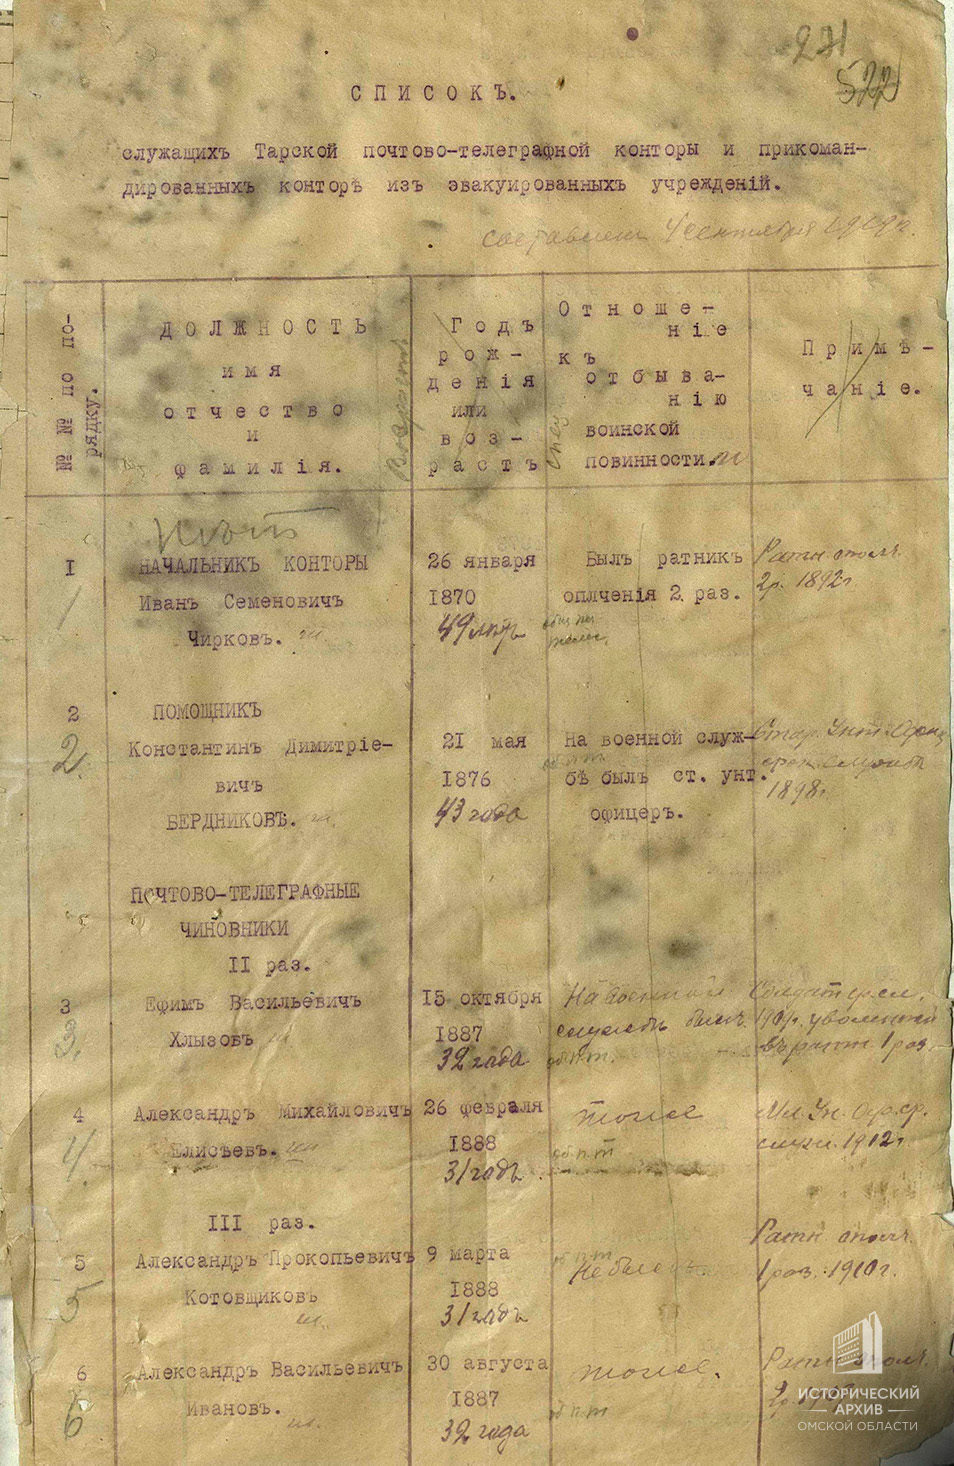 271
522
СПИСОКЪ.
служащихъ Тарской почтово-телеграфной конторы и прикоман-
дированныхъ конторѣ изъ эвакуированныхъ учрежденій.
составленъ 4 сентября 1919 г.
№ № по по-
рядку.
ДОЛЖНОСТЬ
имя
отчество
и
фамилія.
Возрастъ
Годъ
рож-
денія
или
воз-
растъ
Отноше-
ніе
къ
отбыва-
нію
воинской
повинности.
Примѣ-
чаніе.
I
1
НАЧАЛЬНИКЪ КОНТОРЫ
Иванъ Семеновичъ
Чирковъ.
26 января
1870
49 лѣтъ
Былъ ратникъ
оплченія 2 раз.
Ратн. ополч.
2р. 1892г
2
2.
ПОМОЩНИКЪ
Константинъ Димитріе-
вичъ
БЕРДНИКОВЪ.
21 мая
1876
43 года
На военной служ-
бѣ былъ ст. унт.
офицеръ.
1898г.
ПОЧТОВО-ТЕЛЕГРАФНЫЕ
ЧИНОВНИКИ
II раз.
3
3.
Ефимъ Васильевичъ
Хлызовъ
15 октября
1887
32 года
На военной
службѣ былъ
Солдат ср. сл.
уволенный
въ ратн. 1 раз.
4
4.
Александръ Михайловичъ
Елисѣевъ.
26 февраля
1888
31 годъ
тоже
Мл. Ун. Оф. ср.
служ. 1912 г
III раз.
5
5
Александръ Прокопьевичъ
Котовщиковъ
9 марта
1888
31 годъ
Не былъ
Ратн ополч.
1 раз. 1910г.
6
6
Александръ Васильевичъ
Ивановъ.
30 августа
1887
32 года
тоже.
Ратн ополч.
ИСТОРИЧЕСКИЙ
АРХИВ
ОМСКОЙ ОБЛАСТИ